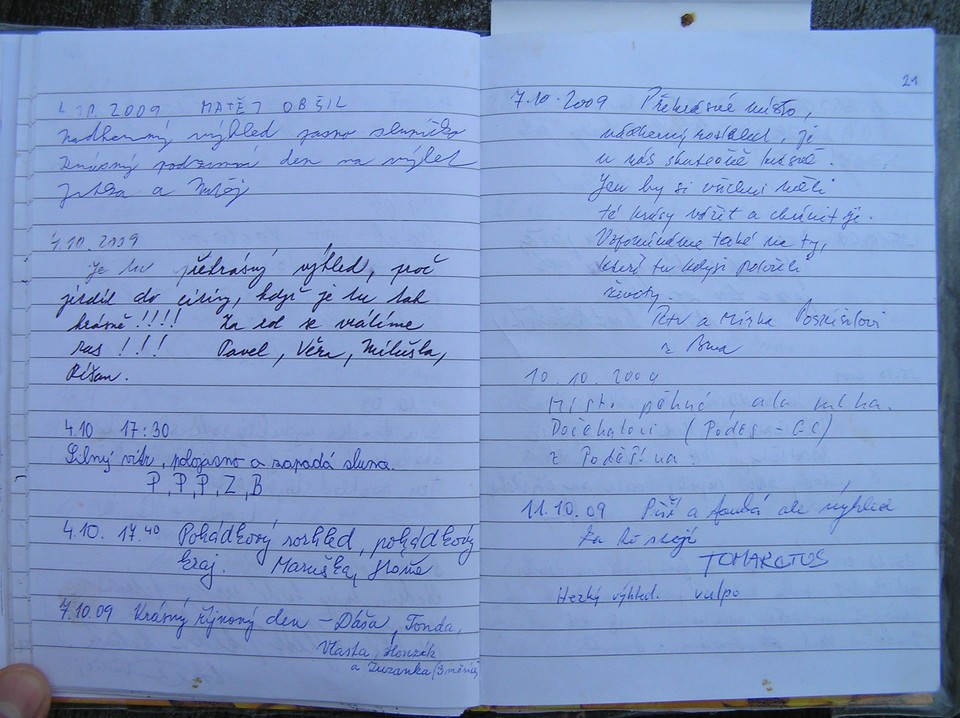 4.10.2009 MATĚJ OBŠIL
Nadherný výhled jasno sluníčko
podzimní den na výlet
a Matěj
4.10.2009
Je tu překrásný výhled, proč
jezdit do ciziny, když je tu tak
krásně!!!! Za rok se vrátíme
zas!!! Pavel, Věra, Miluška,
4.10 17:30
Silný vítr, polojasno a zapadá slunce.
P, P, P, Z, B
4.10. 17.40 Pohádkový rozhled, pohádkový
kraj. Maruška,
7.10.09 Krásný říjnový den – Dáša, Tonda,
Vlasta, Honzík
a Zuzanka (3 měsíce)
21
7.10.2009 Překrásné místo,
nádherný rozhled, je
u nás skutečně krásně.
Jen by si všichni měli
té krásy vážit a chránit je.
Vzpomínáme také na ty,
kteří tu kdysi položili
životy.
Petr a Mirka Pospíšilovi
z Brna
10.10.2009
Místo pěkné, ale
(Poděs – GC)
z Poděšína.
11.10.09 Prší a fouká ale výhled
za to stojí
TOMARCTUS
Hezký výhled. vulpo